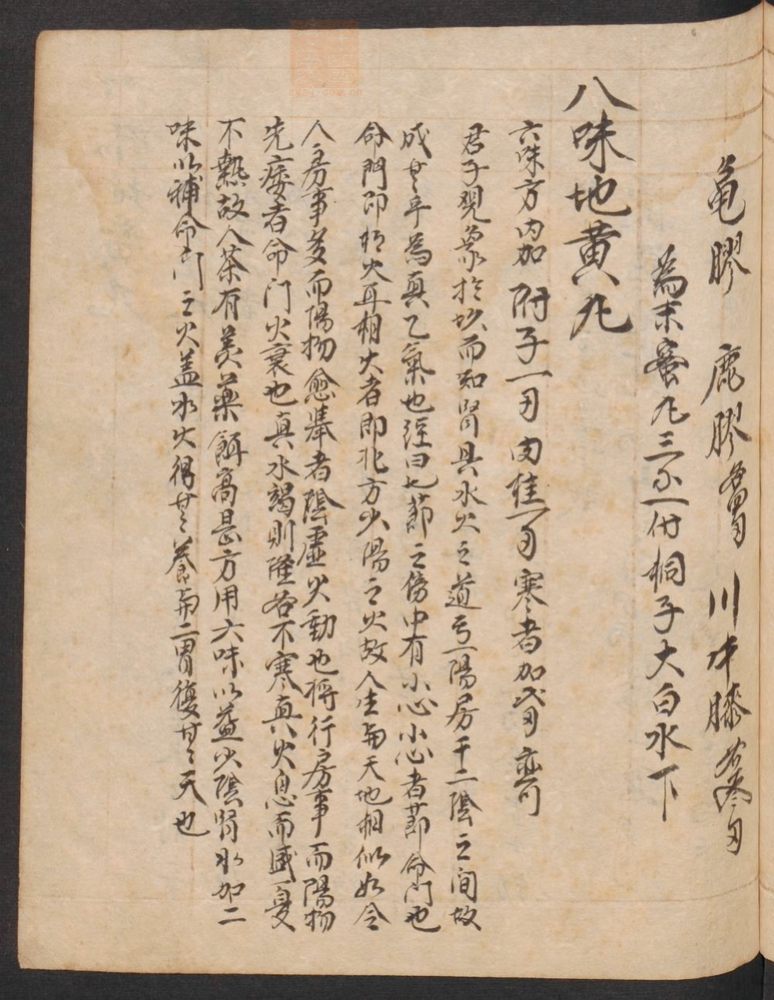 龟膠 鹿膠 各四勹 川牛膝 各叁勹
為末蜜凡三不一付桐子大白水下
八味地黄凡
六味方内加附子一勹 肉桂一勹 寒者加 勹 亦可
君子觀象扵坎而知腎具水火之道亏一陽居于二陰之间故
成其乎為真乙氣也經曰七莭之傍中有小心小心者莭命门也
命門即相火耳相火者即北方少陽之火故人生與天地相似如今
人房事多而陽物愈舉者陰虛火動也将行房事而陽物
先痿者命门火衰也真水竭則隂谷不寒真火息而盛夏
不熱故人荼有美藥餌高是方用六味以益少陰腎水加二
味以補命门之火盖水火得其養而二腎復其天也